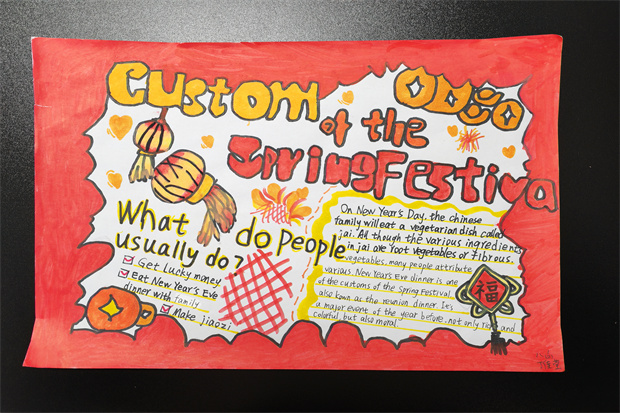 Custom
of the
Spring Festival
What
do people
usually do?
Get Lucky money
Eat New Year's Eve
dinner with family
Make jiaozi
On New Year's Day, the chinese
family will eat a vegetarian dish called
jai. Al though the various ingredients
in jai are root vegetables or fibrous.
vegetables, many people attribute
various. New Year's Eve dinner is one
of the customs of the Spring Festival.
also known as the reunion dinner. It's
a major event of the year before, not only rich and
colorful, but also moral.
福